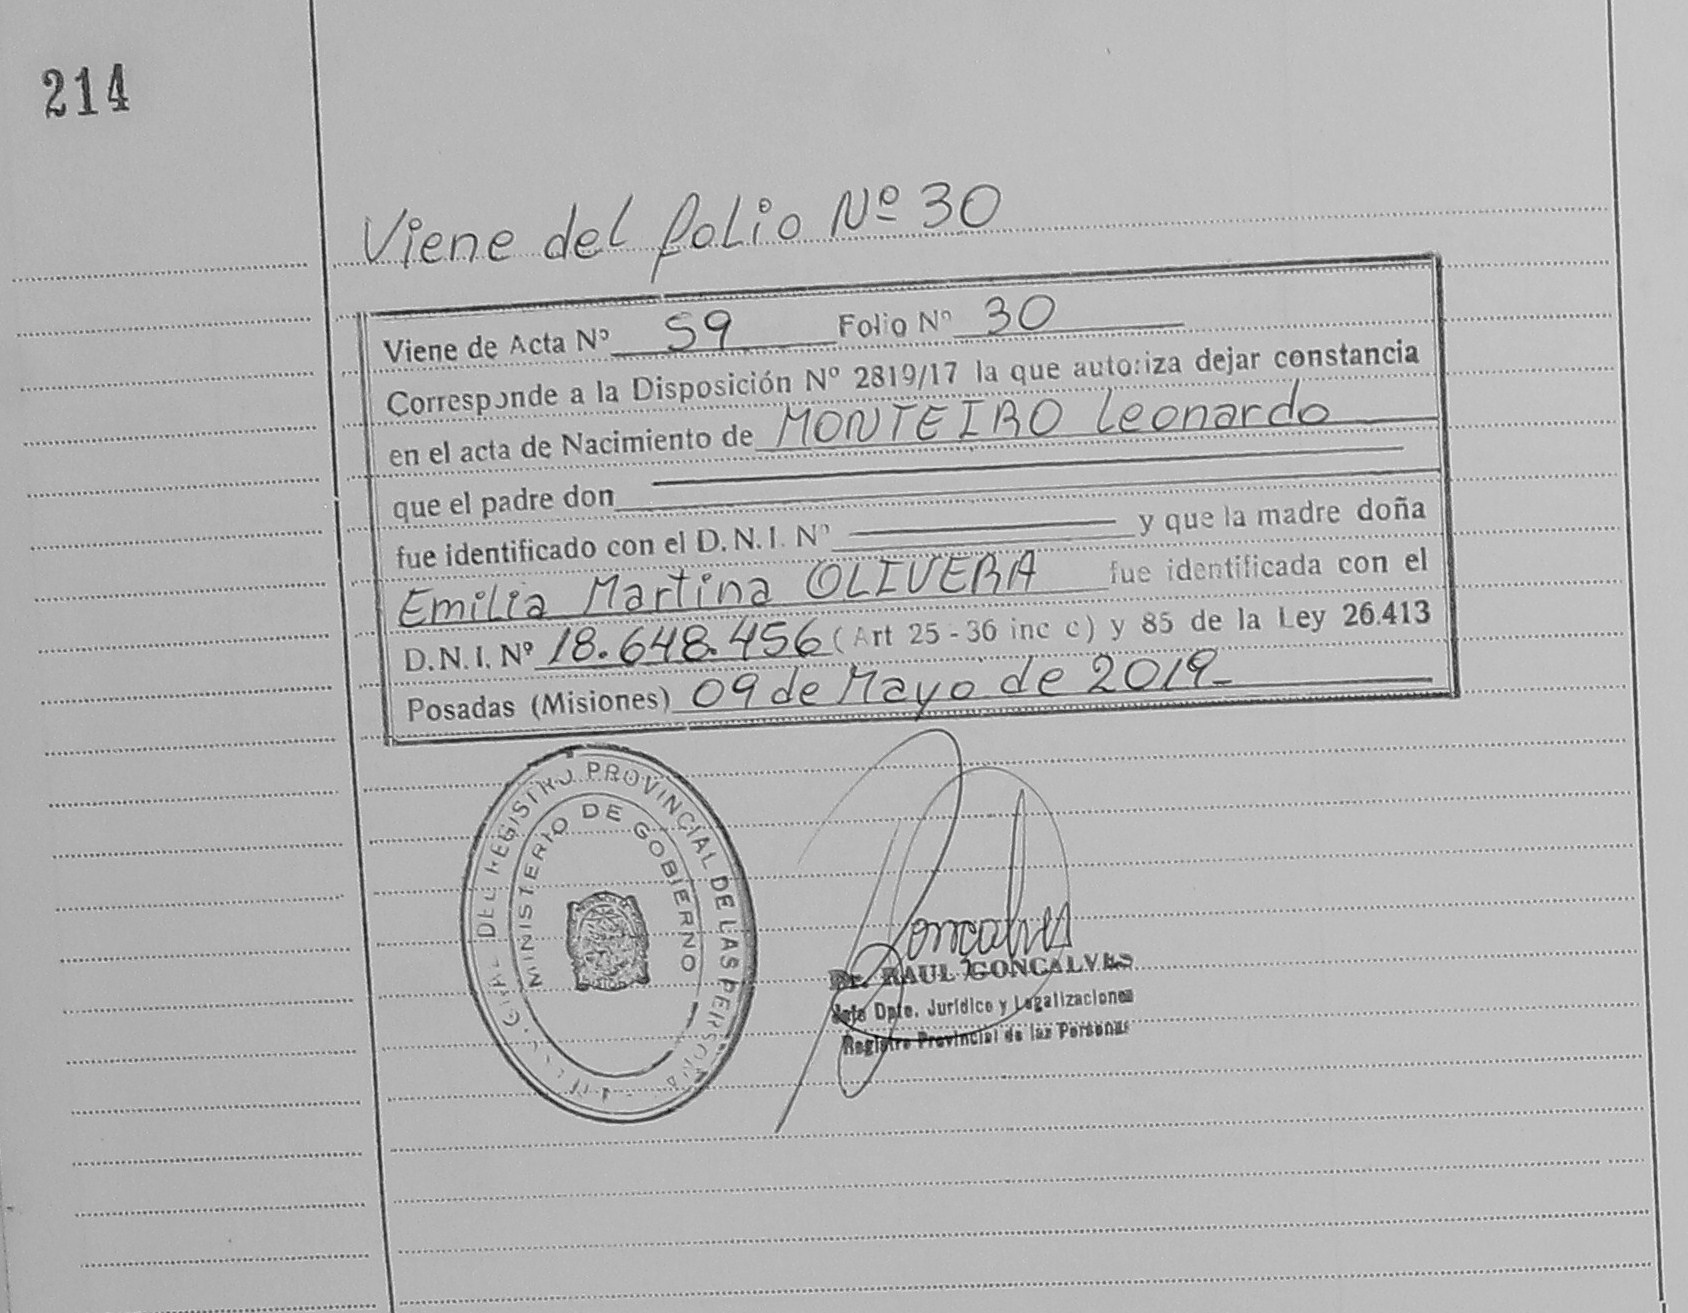 214
Viene del folio Nº 30
Viene de Acta Nº 59 Folio Nº 30
Corresponde a la Disposición Nº 2819/17 la que autoriza dejar constancia
en el acta de Nacimiento de MONTEIRO Leonardo
que el padre don
fue identificado con el D.N.I. Nº y que la madre doña
Emilia Martina OLIVERA fue identificada con el
D.N.I. Nº 18.648.456 (Art 25-36 inc c) y 85 de la Ley 26.413
Posadas (Misiones) 09 de Mayo de 2019-
DEL REGISTRO PROVINCIAL DE LAS PERSONAS
MINISTERIO DE GOBIERNO
Goncalves
Dr. RAUL GONCALVES
Jefe Dpto. Jurídico y Legalizaciones
Registro Provincial de las Personas